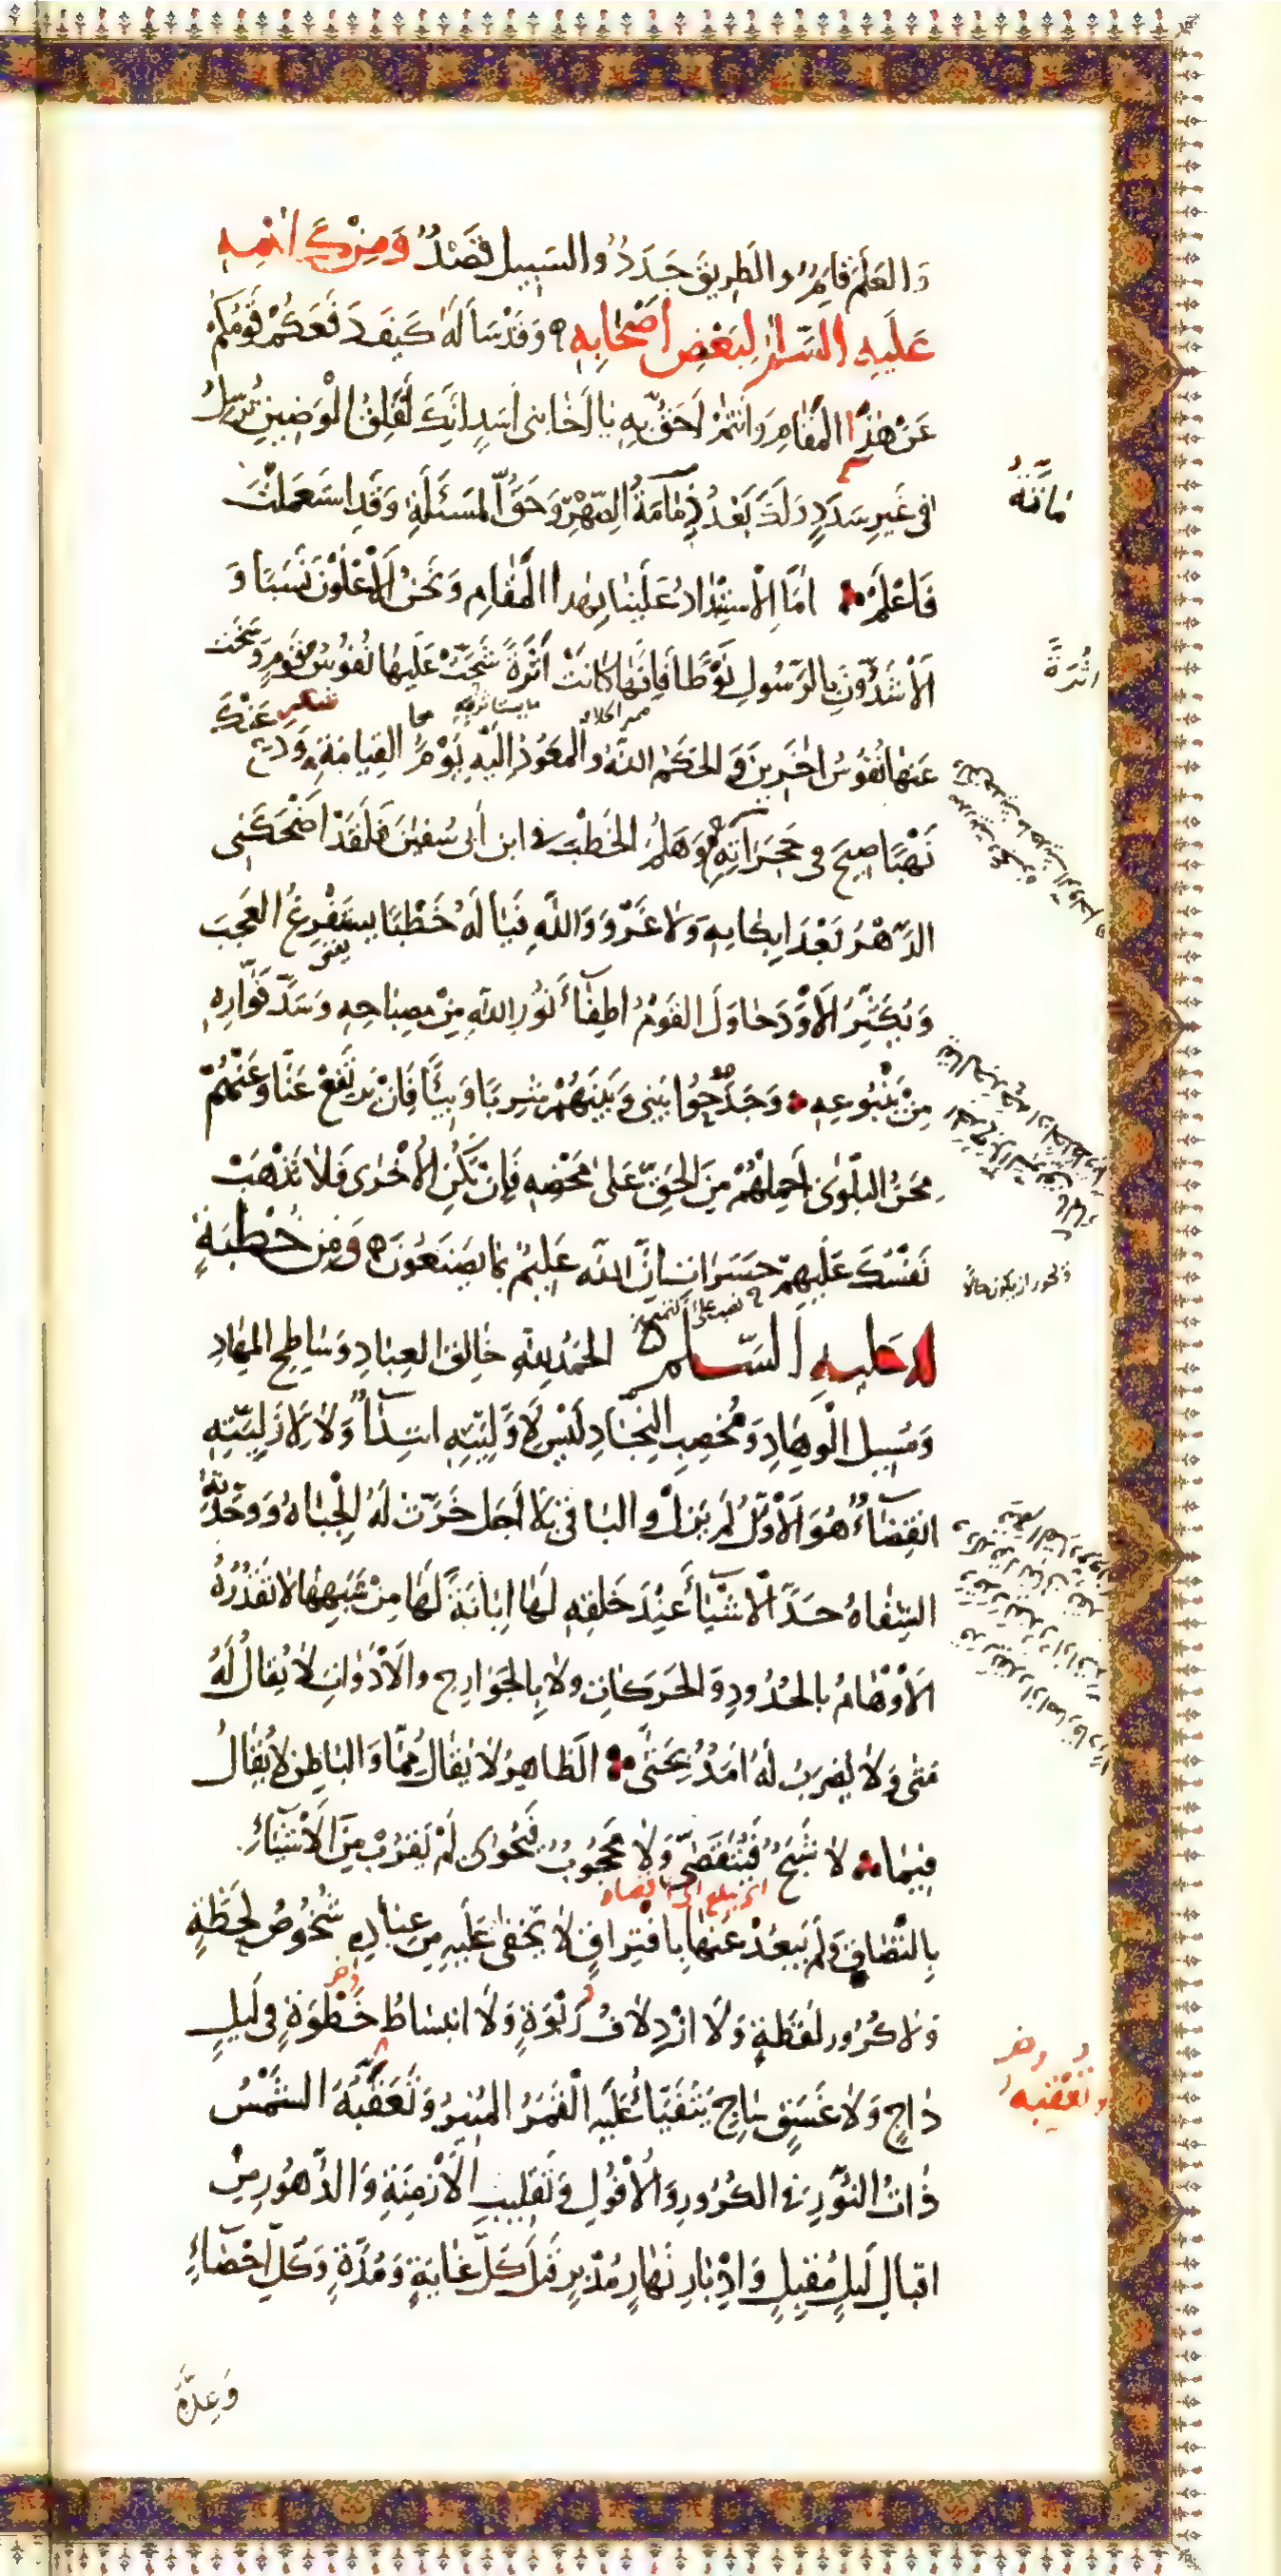 وَالعَلَمُ قَائِمٌ وَالطَّرِيقُ جَدَدٌ وَالسَّبِيلُ قَصْدٌ وَمِنْ كَلَامِهِ
عَلَيهِ السَّلَامُ لِبَعْضِ اَصْحَابِهِ وَقَدْ سَأَلَهُ كَيْفَ دَفَعَكُمْ قَوْمُكُمْ
عَنْ هٰذَا المَقَامِ وَاَنْتُمْ اَحَقُّ بِهِ يَا اَخَا بَنِى اَسَدٍ اِنَّكَ لَقَلِقُ الْوَضِينِ تُرْسِلُ
فِى غَيرِ سَدَدٍ وَلَكَ بَعْدُ ذِمَامَةُ الصِّهْرِ وَحَقُّ المَسْئَلَةِ وَقَدِ اسْتَعْلَمْتَ
مَاتَّةُ
فَاعْلَمْ اَمَّا الْاِسْتِبْدَادُ عَلَيْنَا بِهٰذَا المَقَامِ وَنَحْنُ الْاَعْلَوْنَ نَسَبًا وَ
الْاَشَدُّونَ بِالرَّسُولِ نَوْطًا فَاِنَّهَا كَانَتْ اَثَرَةً شَحَّتْ عَلَيهَا نُفُوسُ قَوْمٍ وَسَخَتْ
اَثَرَةً
عَنْهَا نُفُوسُ اٰخَرِينَ وَالحَكَمُ اللهُ وَالْمَعْوَدُ اِلَيْهِ يَوْمُ القِيَامَةِ وَدَعْ عَنْكَ
نَهْبًا صِيحَ فِى حَجَرَاتِهِ وَهَلُمَّ الخَطْبَ فى ابنِ اَبى سُفيٰنَ فَلَقَدْ اَضْحَكَنِى
الدَّهْرُ بَعْدَ اِبكَائِهِ وَلَا غَرْوَ وَاللهِ فَيَا لَهُ خَطْبًا يَستَفْرِغُ العَجَبَ
وَيُكَثِّرُ الْاَوَدَ حَاوَلَ القَوْمُ اِطفَاءَ نُورِ اللهِ مِنْ مِصبَاحِهِ وَسَدَّ فَوَّارِهِ
مِنْ يَنْبُوعِهِ وَجَدَحُوا بَينِى وَبَينَهُمْ شِربًا وَبِيئًا فَاِنْ تَرتَفِعْ عَنَّا وَعَنْهُمْ
مِحَنُ البَلْوىٰ اَحمِلْهُمْ مِنَ الحَقِّ عَلىٰ مَحْضِهِ وَاِنْ تَكُنِ الْاُخْرٰى فَلَا تَذْهَبْ
نَفْسُكَ عَلَيهِمْ حَسَرَاتٍ اِنَّ اللهَ عَلِيمٌ بِمَا يَصنَعُونَ وَمِن خُطبَةٍ
لَهُ عَلَيهِ السَّلَامُ الحَمْدُ للهِ خَالِقِ العِبَادِ وَسَاطِحِ المِهَادِ
وَمُسِيلِ الْوِهَادِ وَمُخصِبِ النِّجَادِ لَيْسَ لِاَوَّلِيَّتِهِ ابتِدَاءٌ وَلَا لِاَزَلِيَّتِهِ
انقِضَاءٌ هُوَ الْاَوَّلُ لَم يَزَلْ وَالبَاقِى بِلَا اَجَلٍ خَرَّتْ لَهُ الْجِبَاهُ وَوَحَّدَتْهُ
الشِّفَاهُ حَدَّ الْاَشْيَاءَ عِنْدَ خَلقِهِ لَهَا اِبَانَةً لَهَا مِنْ شَبَهِهَا لَا تُقَدِّرُهُ
الْاَوْهَامُ بِالحُدُودِ وَالحَرَكَاتِ وَلَا بِالجَوَارِحِ وَالْاَدَوَاتِ لَا يُقَالُ لَهُ
مَتٰى وَلَا يُضرَبُ لَهُ اَمَدٌ بِحَتّٰى الظَّاهِرُ لَا يُقَالُ مِمَّا وَالبَاطِنُ لَا يُقَالُ
فِيمَا لَا شَبَحٌ فَيُتَقَضّٰى وَلَا مَحجُوبٌ فَيُحْوٰى لَمْ يَقرُبْ مِنَ الْاَشْيَاءِ
بِالتِصَاقٍ وَلَم يَبعُدْ عَنهَا بِافْتِرَاقٍ لَا يَخفٰى عَلَيهِ مِن عِبَادِهِ شُخُوصُ لَحظَةٍ
وَلَا كُرُورُ لَفظَةٍ وَلَا ازْدِلَافُ رَبْوَةٍ وَلَا انبِسَاطُ خُطْوَةٍ فِى لَيلٍ
دَاجٍ وَلَا غَسَقٍ سَاجٍ يَتَفَيَّأُ عَلَيهِ القَمَرُ المُنِيرُ وَتَعْقُبُهُ الشَّمْسُ
وتعقبه
ذَاتُ النُّورِ فى الكُرُورِ وَالْاُفُولِ وَتَقلِيبِ الْاَزْمِنَةِ وَالدُّهُورِ مِنْ
اِقبَالِ لَيلٍ مُقبِلٍ وَاِدْبَارِ نَهَارٍ مُدْبِرٍ قَبلَ كُلِّ غَايَةٍ وَمُدَّةٍ وَكُلِّ اِحْصَاءٍ
وَعِدَّةٍ